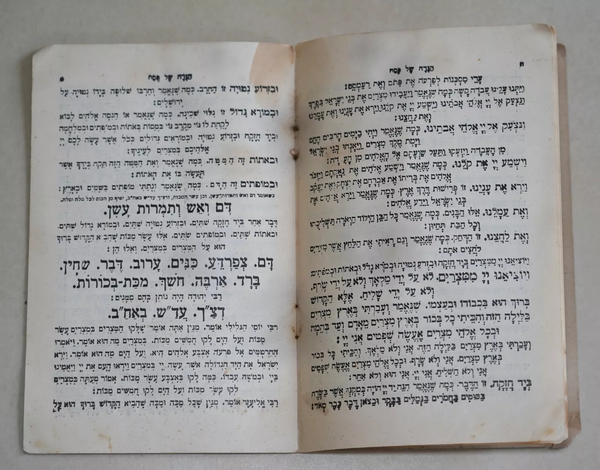 הגדה של פסח ח
ערי מסכנות לפרעה את פתם ואת רעמסס:
ויתנו עלינו עבדה קשה. כמה שנאמר ויעבידו מצרים את בני ישראל בפרך
ונצעק אל יי אלהי אבותינו וישמע יי את קולנו וירא את ענינו ואת עמלנו
ואת לחצנו:
ונצעק אל יי אלהי אבותינו. כמה שנאמר ויהי בימים הרבים ההם
וימת מלך מצרים ויאנחו בני ישראל
מן העבודה ויזעקו ותעל שועתם אל האלהים מן העבודה:
וישמע יי את קולנו. כמה שנאמר וישמע אלהים את נאקתם ויזכר
אלהים את בריתו את אברהם את יצחק ואת יעקב
וירא את ענינו. זו פרישות דרך ארץ. כמה שנאמר וירא אלהים את
בני ישראל וידע אלהים:
ואת עמלנו. אלו הבנים. כמה שנאמר כל הבן הילוד היארה תשליכוהו
וכל הבת תחיון:
ואת לחצנו. זו הדחק. כמה שנאמר וגם ראיתי את הלחץ אשר מצרים
לוחצים אותם:
ויוציאנו יי ממצרים ביד חזקה ובזרוע נטויה ובמורא גדול ובאותות ובמופתים:
ויוציאנו יי ממצרים. לא על ידי מלאך ולא על ידי שרף.
ולא על ידי שליח. אלא הקדוש
ברוך הוא בכבודו ובעצמו. שנאמר ועברתי בארץ מצרים
בלילה הזה והכיתי כל בכור בארץ מצרים מאדם ועד בהמה
ובכל אלהי מצרים אעשה שפטים אני יי:
ועברתי בארץ מצרים בלילה הזה. אני ולא מלאך. והכיתי כל בכור
בארץ מצרים. אני ולא שרף. ובכל אלהי מצרים אעשה שפטים
אני ולא השליח. אני יי אני הוא ולא אחר:
ביד חזקה. זו הדבר. כמה שנאמר הנה יד יהוה הויה במקנך אשר בשדה
בסוסים בחמורים בגמלים בבקר ובצאן דבר כבד מאד:
הגדה של פסח
ובזרוע נטויה זו החרב. כמה שנאמר וחרבו שלופה בידו נטויה על
ירושלים:
ובמורא גדול זו גלוי שכינה. כמה שנאמר או הנסה אלהים לבוא
לקחת לו גוי מקרב גוי במסות באותות ובמופתים ובמלחמה
וביד חזקה ובזרוע נטויה ובמוראים גדולים ככל אשר עשה לכם יי
אלהיכם במצרים לעיניך:
ובאותות זה המטה. כמה שנאמר ואת המטה הזה תקח בידך אשר
תעשה בו את האותות:
ובמופתים זה הדם. כמה שנאמר ונתתי מופתים בשמים ובארץ:
דם ואש ותמרות עשן.
דבר אחר ביד חזקה שתים. ובזרוע נטויה שתים. ובמורא גדול שתים.
ובאותות שתים. ובמופתים שתים. אלו עשר מכות שהביא הקדוש ברוך
הוא על המצרים במצרים. ואלו הן:
דם. צפרדע. כנים. ערוב. דבר. שחין.
ברד. ארבה. חשך. מכת-בכורות.
רבי יהודה היה נותן בהם סמנים:
דצ״ך. עד״ש. באח״ב.
רבי יוסי הגלילי אומר. מנין אתה אומר שלקו המצרים במצרים עשר
מכות ועל הים לקו חמשים מכות. במצרים מה הוא אומר. ויאמרו
החרטמים אל פרעה אצבע אלהים היא. ועל הים מה הוא אומר. וירא
ישראל את היד הגדולה אשר עשה יי במצרים וייראו העם את יי ויאמינו
ביי ובמשה עבדו. כמה לקו באצבע עשר מכות. אמור מעתה במצרים
לקו עשר מכות ועל הים לקו חמשים מכות:
רבי אליעזר אומר. מנין שכל מכה ומכה שהביא הקדוש ברוך הוא על